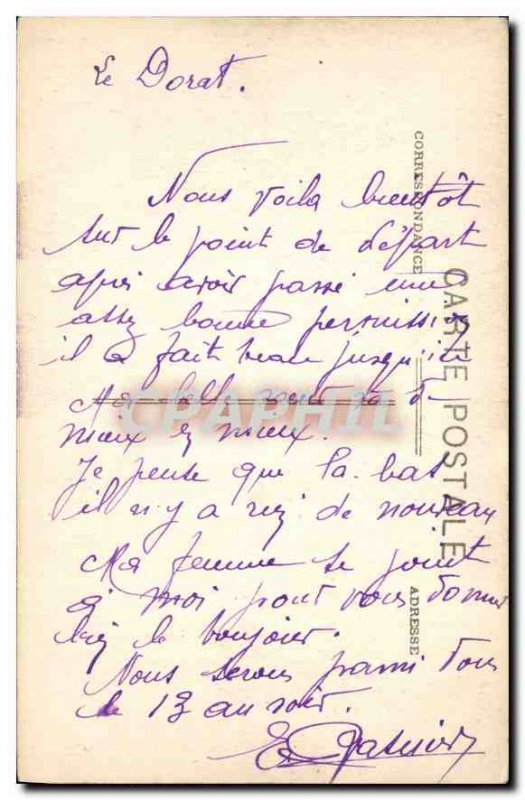 Le Dorat.
Nous voila bientôt
sur le point de départ
après avoir passé une
assez bonne permission
il a fait beau jusqu'ici
Ma belle va de
mieux en mieux.
Je pense que la bas
il n'y a rien de nouveau
Ma femme se joint
à moi pour vous donner
bien le bonjour.
Nous serons parmi vous
le 13 au soir.
CORRESPONDANCE
CARTE POSTALE
ADRESSE
CPAPHIL